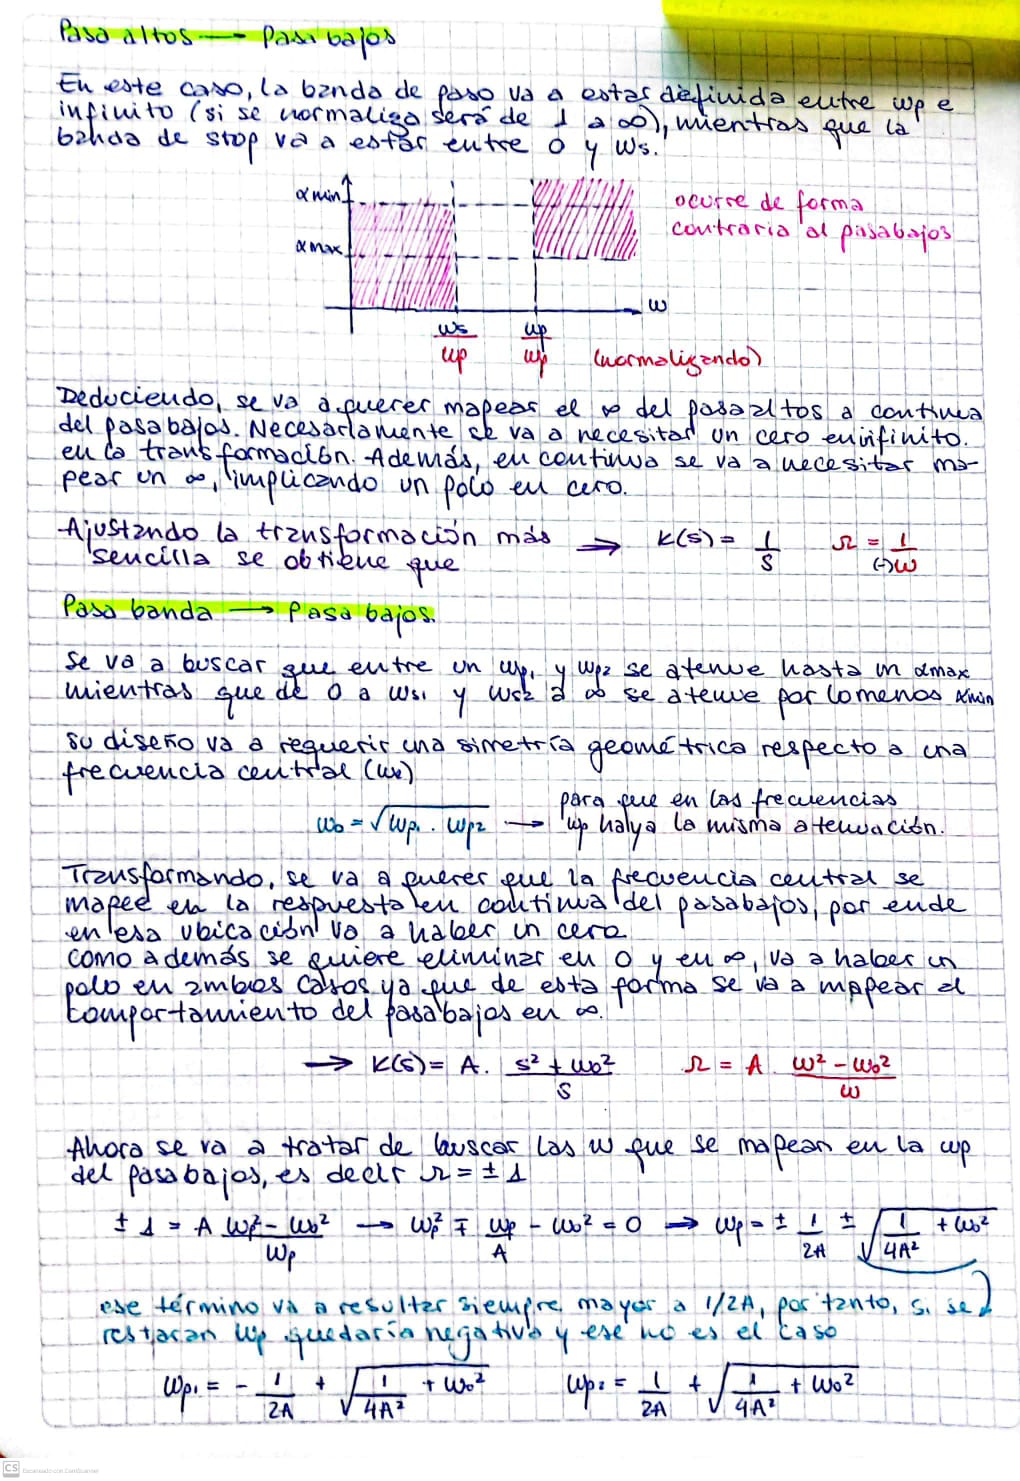 Pasa altos → Pasa bajos
En este caso, la banda de paso va a estar definida entre wp e
infinito (si se normaliza será de 1 a ∞), mientras que la
banda de stop va a estar entre 0 y ws.
αmin
αmax
ocurre de forma
contraria al pasabajos
w
ws/wp wp/wp (normalizando)
Deduciendo, se va a querer mapear el ∞ del pasaaltos a continua
del pasabajos. Necesariamente se va a necesitar un cero en infinito.
en la transformación. Además, en continua se va a necesitar ma-
pear un ∞, implicando un polo en cero.
Ajustando la transformación más ⇒ K(s) = 1/s Ω = 1/(-)w
sencilla se obtiene que
Pasa banda → Pasa bajos.
Se va a buscar que entre un wp1 y wp2 se atenue hasta un αmax
mientras que de 0 a ws1 y ws2 a ∞ se atenue por lo menos αmin
su diseño va a requerir una simetría geométrica respecto a una
frecuencia central (wo)
wo = √wp1 . wp2 → para que en las frecuencias
wp halya la misma atenuación.
Transformando, se va a querer que la frecuencia central se
mapee en la respuesta en continua del pasabajos, por ende
en esa ubicación va a haber un cero
como además se quiere eliminar en 0 y en ∞, va a haber un
polo en ambos casos ya que de esta forma se va a mapear el
comportamiento del pasabajos en ∞.
→ K(s) = A. (s² + wo²)/s Ω = A (w² - wo²)/w
Ahora se va a tratar de buscar las w que se mapean en la wp
del pasabajos, es decir Ω = ± 1
± 1 = A (wp² - wo²)/wp → wp² ∓ wp/A - wo² = 0 → wp = ± 1/2A ± √(1/4A² + wo²)
ese término va a resultar siempre mayor a 1/2A, por tanto, si se
restaran wp quedaría negativa y ese no es el caso
wp1 = - 1/2A + √(1/4A² + wo²) wp2 = 1/2A + √(1/4A² + wo²)
CS Escaneado con CamScanner